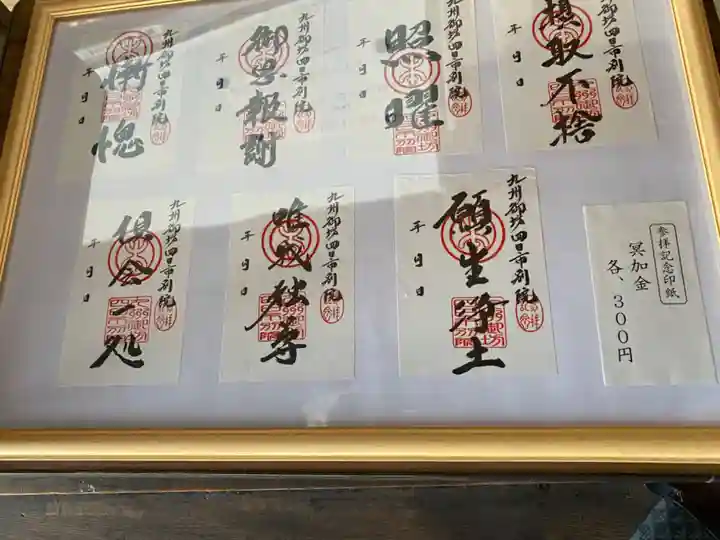 摂取不捨
九州御坊四日市別院
年 月 日
照曜
九州御坊四日市別院
年 月 日
御恩報謝
九州御坊四日市別院
年 月 日
慚愧
九州御坊四日市別院
年 月 日
参拝記念印紙
冥加金
各、300円
願生浄土
九州御坊四日市別院
年 月 日
唯我独尊
九州御坊四日市別院
年 月 日
倶会一処
九州御坊四日市別院
年 月 日